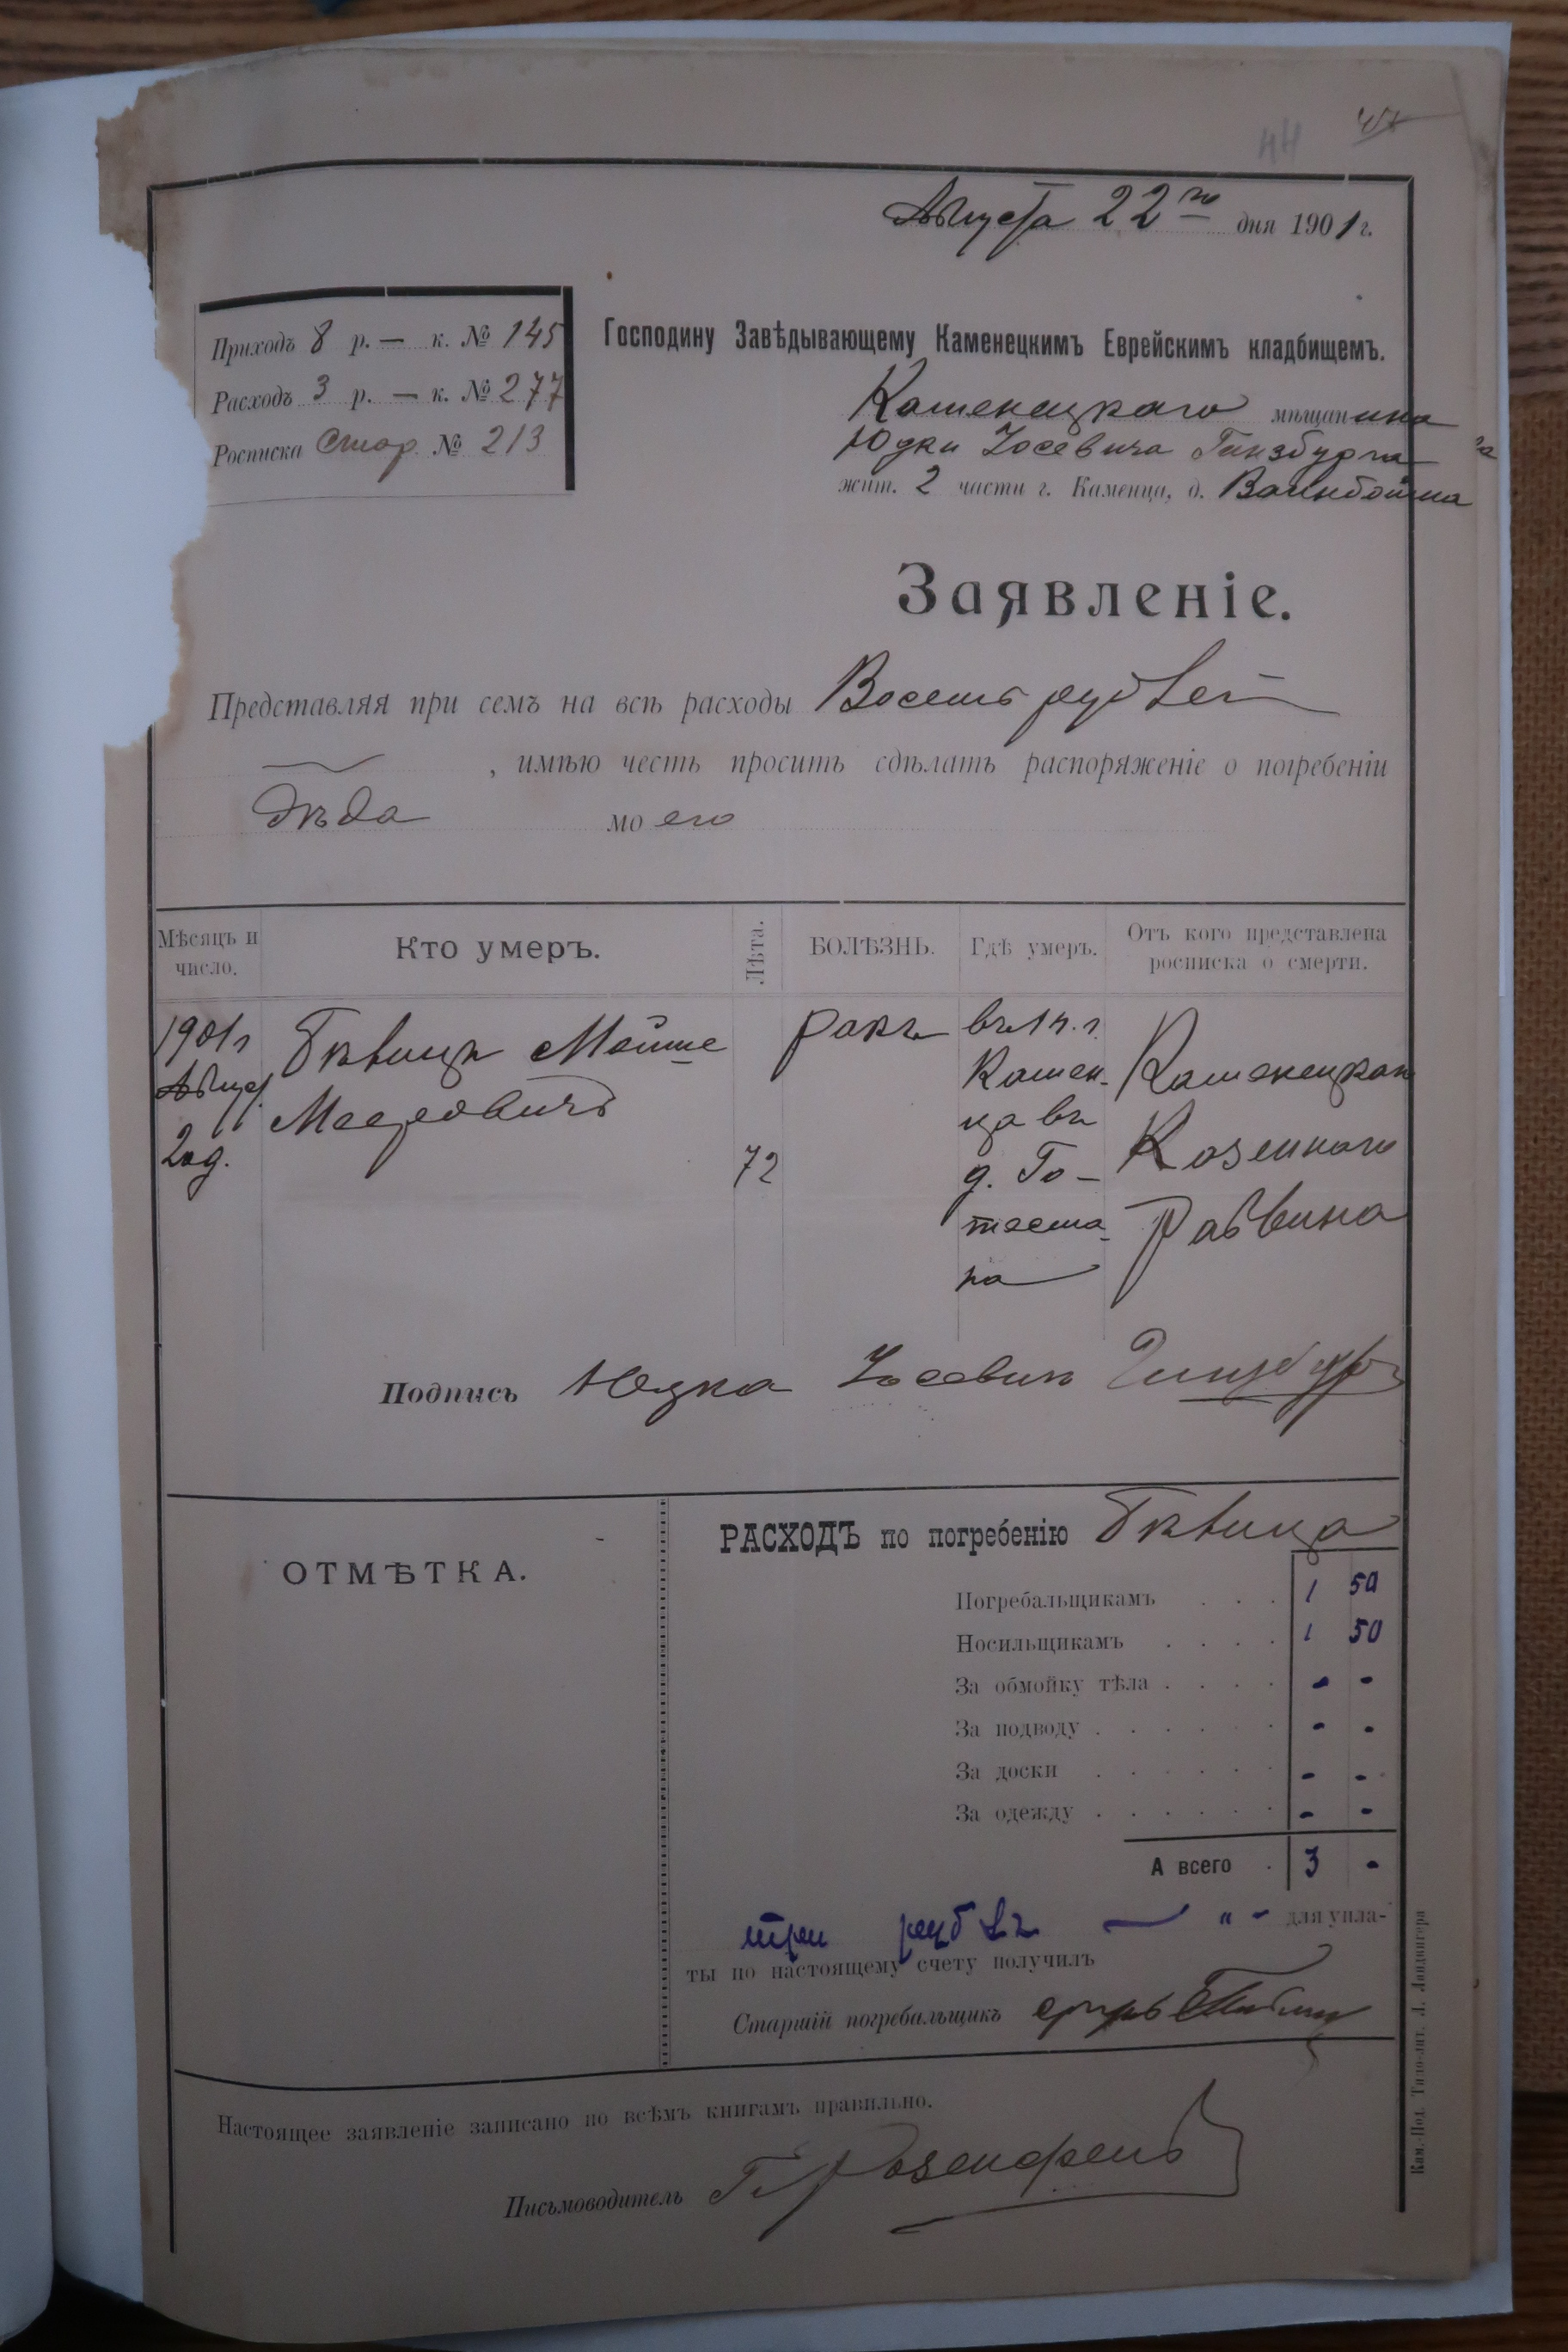 44
Августа 22го дня 1901 г.
Приходъ 8 р. — к. № 145
Расходъ 3 р. — к. № 277
Росписка стар. № 213
Господину Завѣдывающему Каменецкимъ Еврейскимъ кладбищемъ.
Каменецкаго мѣщанина
Юдки Іосевича Гинзбурга
жит. 2 части г. Каменца, д. Вайнбойма
Заявленіе.
Представляя при семъ на всѣ расходы Восемь рублей
—, имѣю честь просить сдѣлать распоряженіе о погребеніи
дѣда моего
Мѣсяцъ и число.
Кто умеръ.
Лѣта.
БОЛѢЗНЬ.
Гдѣ умеръ.
Отъ кого представлена росписка о смерти.
1901 г
Август.
Мойше
Мееровичъ
72
ракъ
въ 1 ч. г.
Камен-
ца въ
д. Го-
Каменецкаго
Казеннаго
Раввина
Подпись Юдка Іосевич Гинзбург
ОТМѢТКА.
РАСХОДЪ по погребенію
Погребальщикамъ . . . 1 50
Носильщикамъ . . . . 1 50
За обмойку тѣла . . . . - -
За подводу . . . . . - -
За доски . . . . . - -
За одежду . . . . . - -
А всего . 3 -
три рубля — " - для упла-
ты по настоящему счету получилъ
Старшій погребальщикъ
Настоящее заявленіе записано по всѣмъ книгамъ правильно.
Письмоводитель Г. Розенфельд
Кам.-Под. Типо-лит. Л. Ландвигера